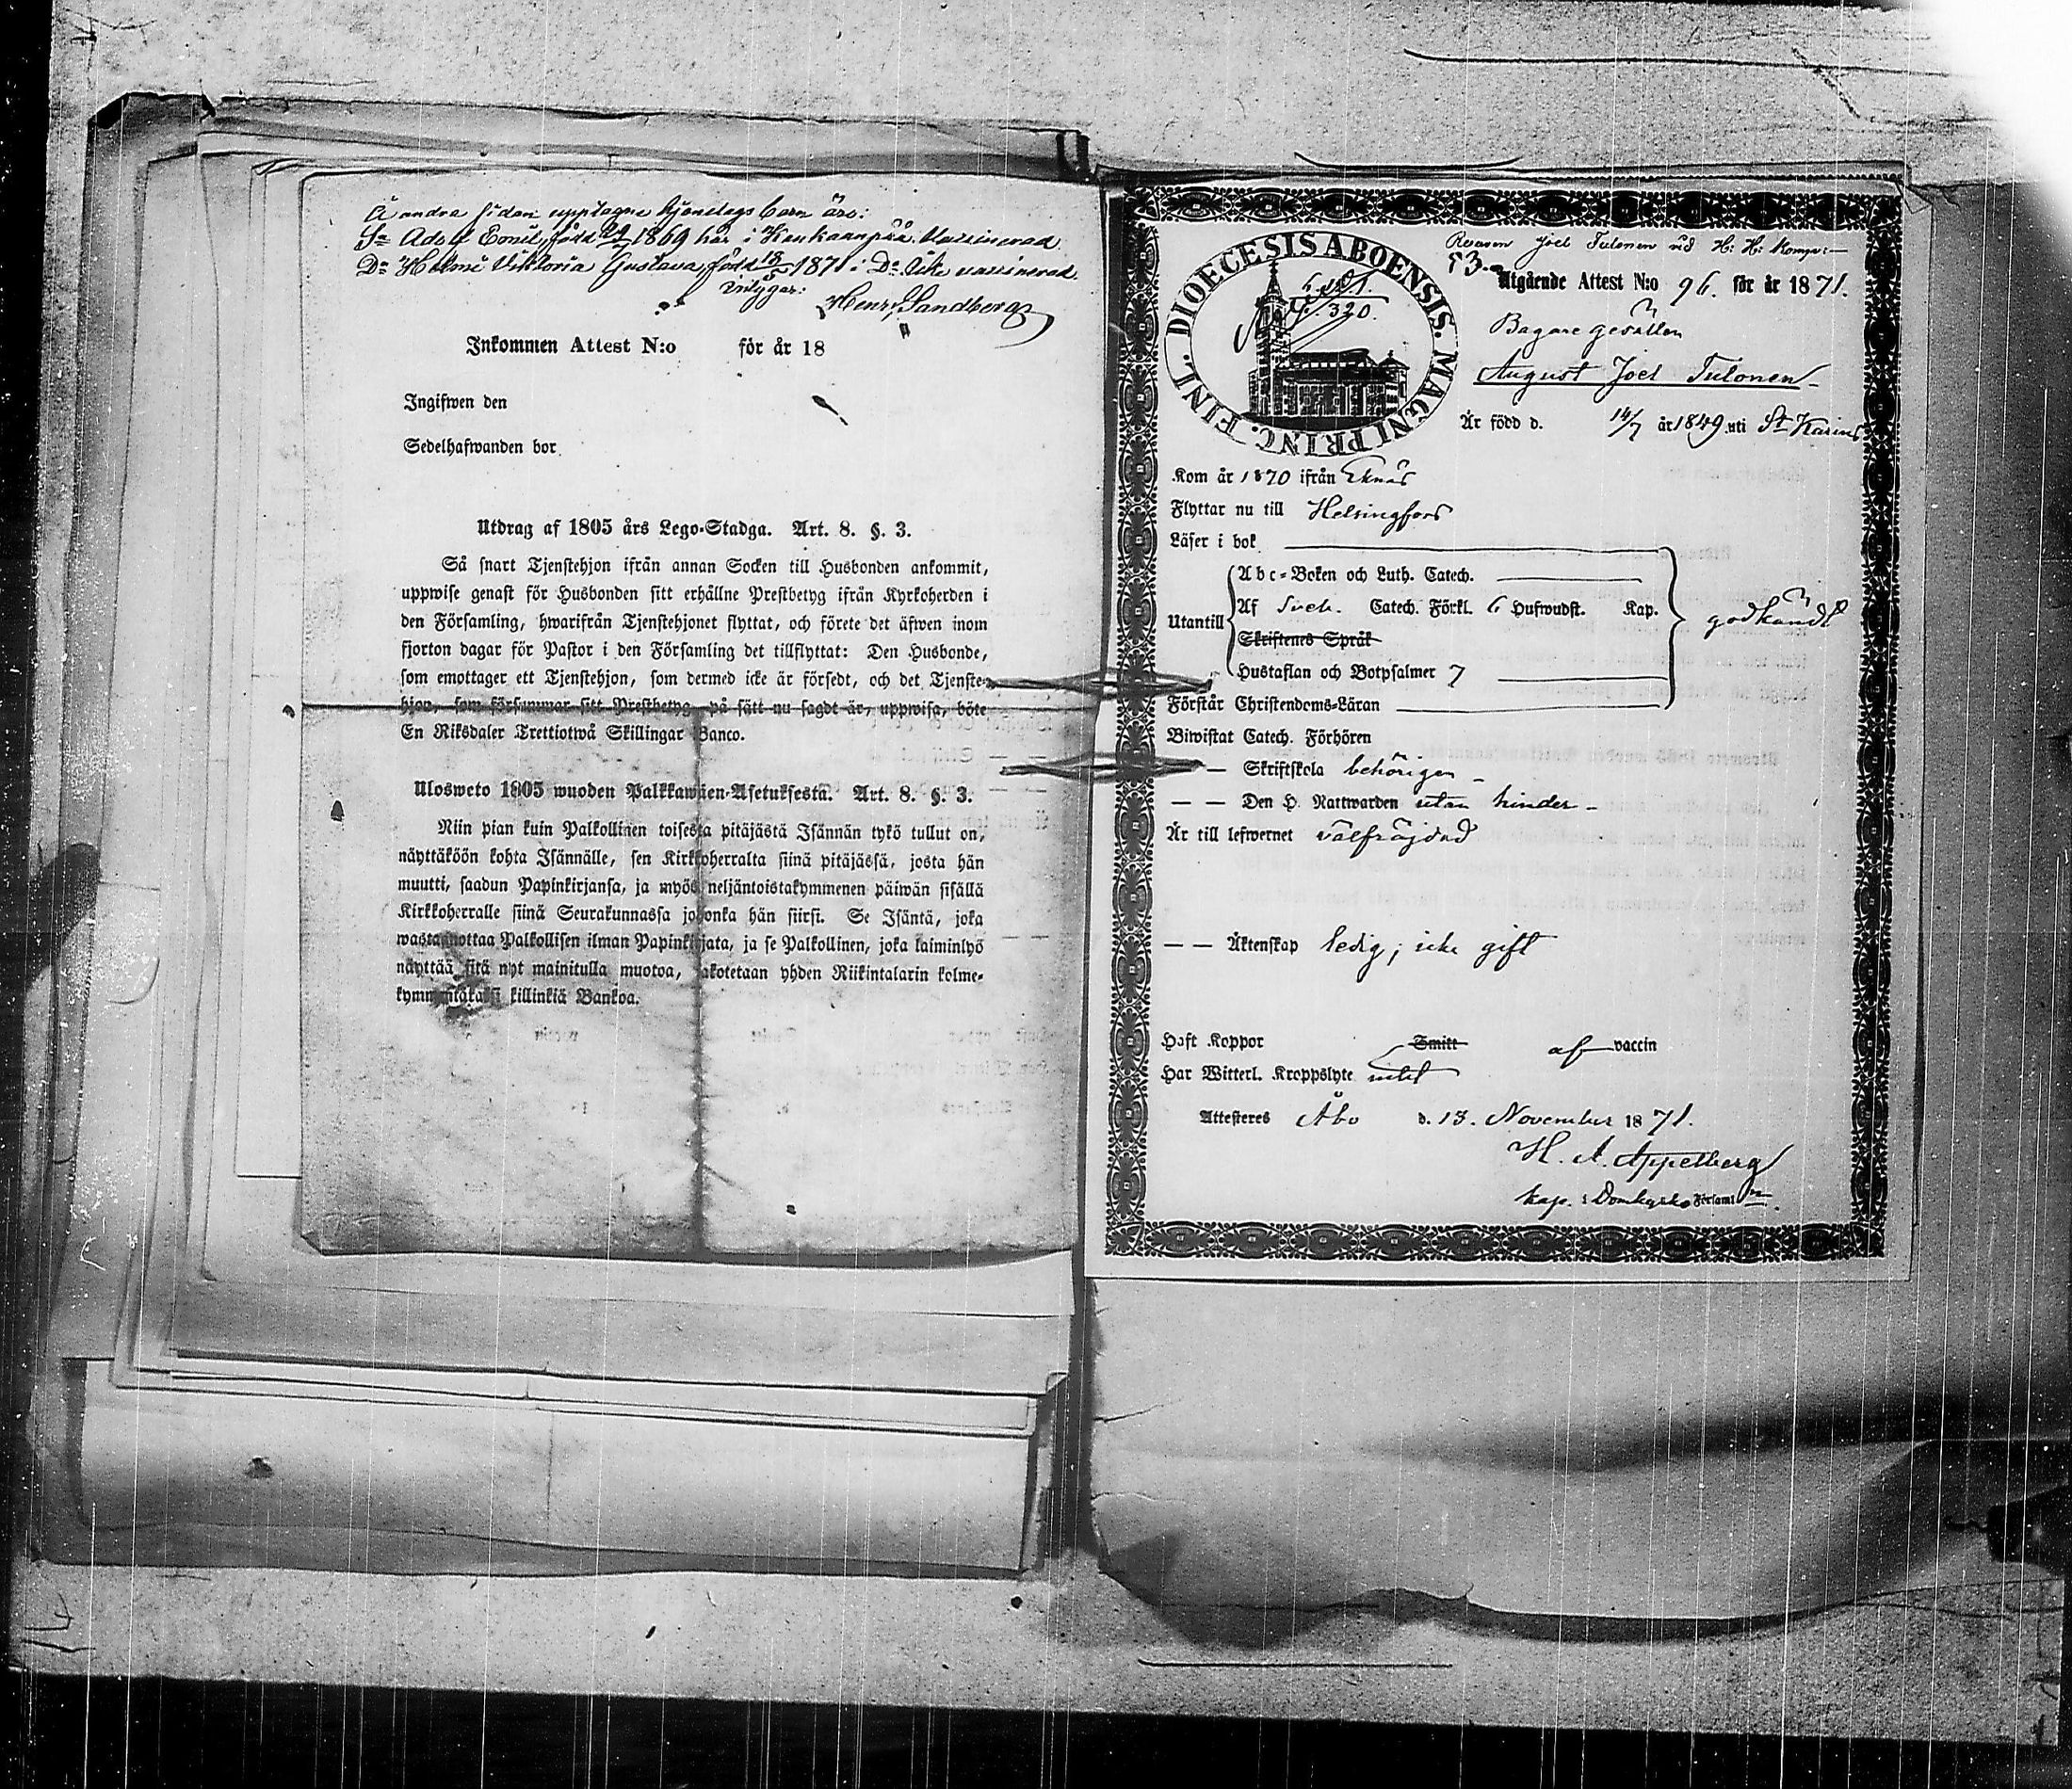 Å andra sidan upptagne hjonelags barn äro:
Sn Adolf Emil, född 29/7 1869 här i Kankaanpää. Vaccinerad
Dr Helmi Viktoria Gustava, född 18/5 1871 i Do Icke vaccinerad
intygar:
Henr. Sandberg
Inkommen Attest N:o för år 18
Ingifwen den
Sedelhafwanden bor
Utdrag af 1805 års Lego-Stadga. Art. 8. §. 3.
Så snart Tjenstehjon ifrån annan Socken till Husbonden ankommit,
uppwise genast för Husbonden sitt erhållne Prestbetyg ifrån Kyrkoherden i
den Församling, hwarifrån Tjenstehjonet flyttat, och förete det äfwen inom
fjorton dagar för Pastor i den Församling det tillflyttat: Den Husbonde,
som emottager ett Tjenstehjon, som dermed icke är försedt, och det Tjenste-
hjon, som försummar sitt Prestbetyg på sätt nu sagdt är, uppwisa, böte
En Riksdaler Trettiotwå Skillingar Banco.
Ulosweto 1805 wuoden Palkkawäen-Asetuksesta. Art. 8. §. 3.
Niin pian kuin Palkollinen toisesta pitäjästä Isännän tykö tullut on,
näyttäköön kohta Isännälle, sen Kirkkoherralta siinä pitäjässä, josta hän
muutti, saadun Papinkirjansa, ja myös neljäntoistakymmenen päiwän sisällä
Kirkkoherralle siinä Seurakunnassa johonka hän siirsi. Se Isäntä, joka
wastaanottaa Palkollisen ilman Papinkirjata, ja se Palkollinen, joka laiminlyö
näyttää sitä nyt mainitulla muotoa, sakotetaan yhden Riikintalarin kolme-
kymmentäkaksi killinkiä Bankoa.
DIOECESIS ABOENSIS. MAGNI PRINC. FINL.
320.
Joel Tulonen vid H: H: Komp:
53.
Utgående Attest N:o 96. för år 1871.
Bagare gesällen
August Joel Tulonen
Är född d. 14/7 år 1849 uti St Karins
Kom år 1870 ifrån Eknäs
Flyttar nu till Helsingfors
Läser i bok
Utantill
Abc-Boken och Luth. Catech.
Af Sveb. Catech. Förkl. 6 Hufwudst. Kap.
Skriftenes Språk
Hustaflan och Botpsalmer 7
godkändt
Förstår Christendoms-Läran
Biwistat Catech. Förhören
— Skriftskola behörigen
— — Den H. Nattwarden utan hinder
Är till lefwernet välfräjdad
— — Äktenskap ledig; icke gift
Haft Koppor Smitt af vaccin
Har Witterl. Kroppslyte intet
Attesteres Åbo d. 13. November 1871.
H. A. Appelberg
kap. i Domkyrko Församl n.